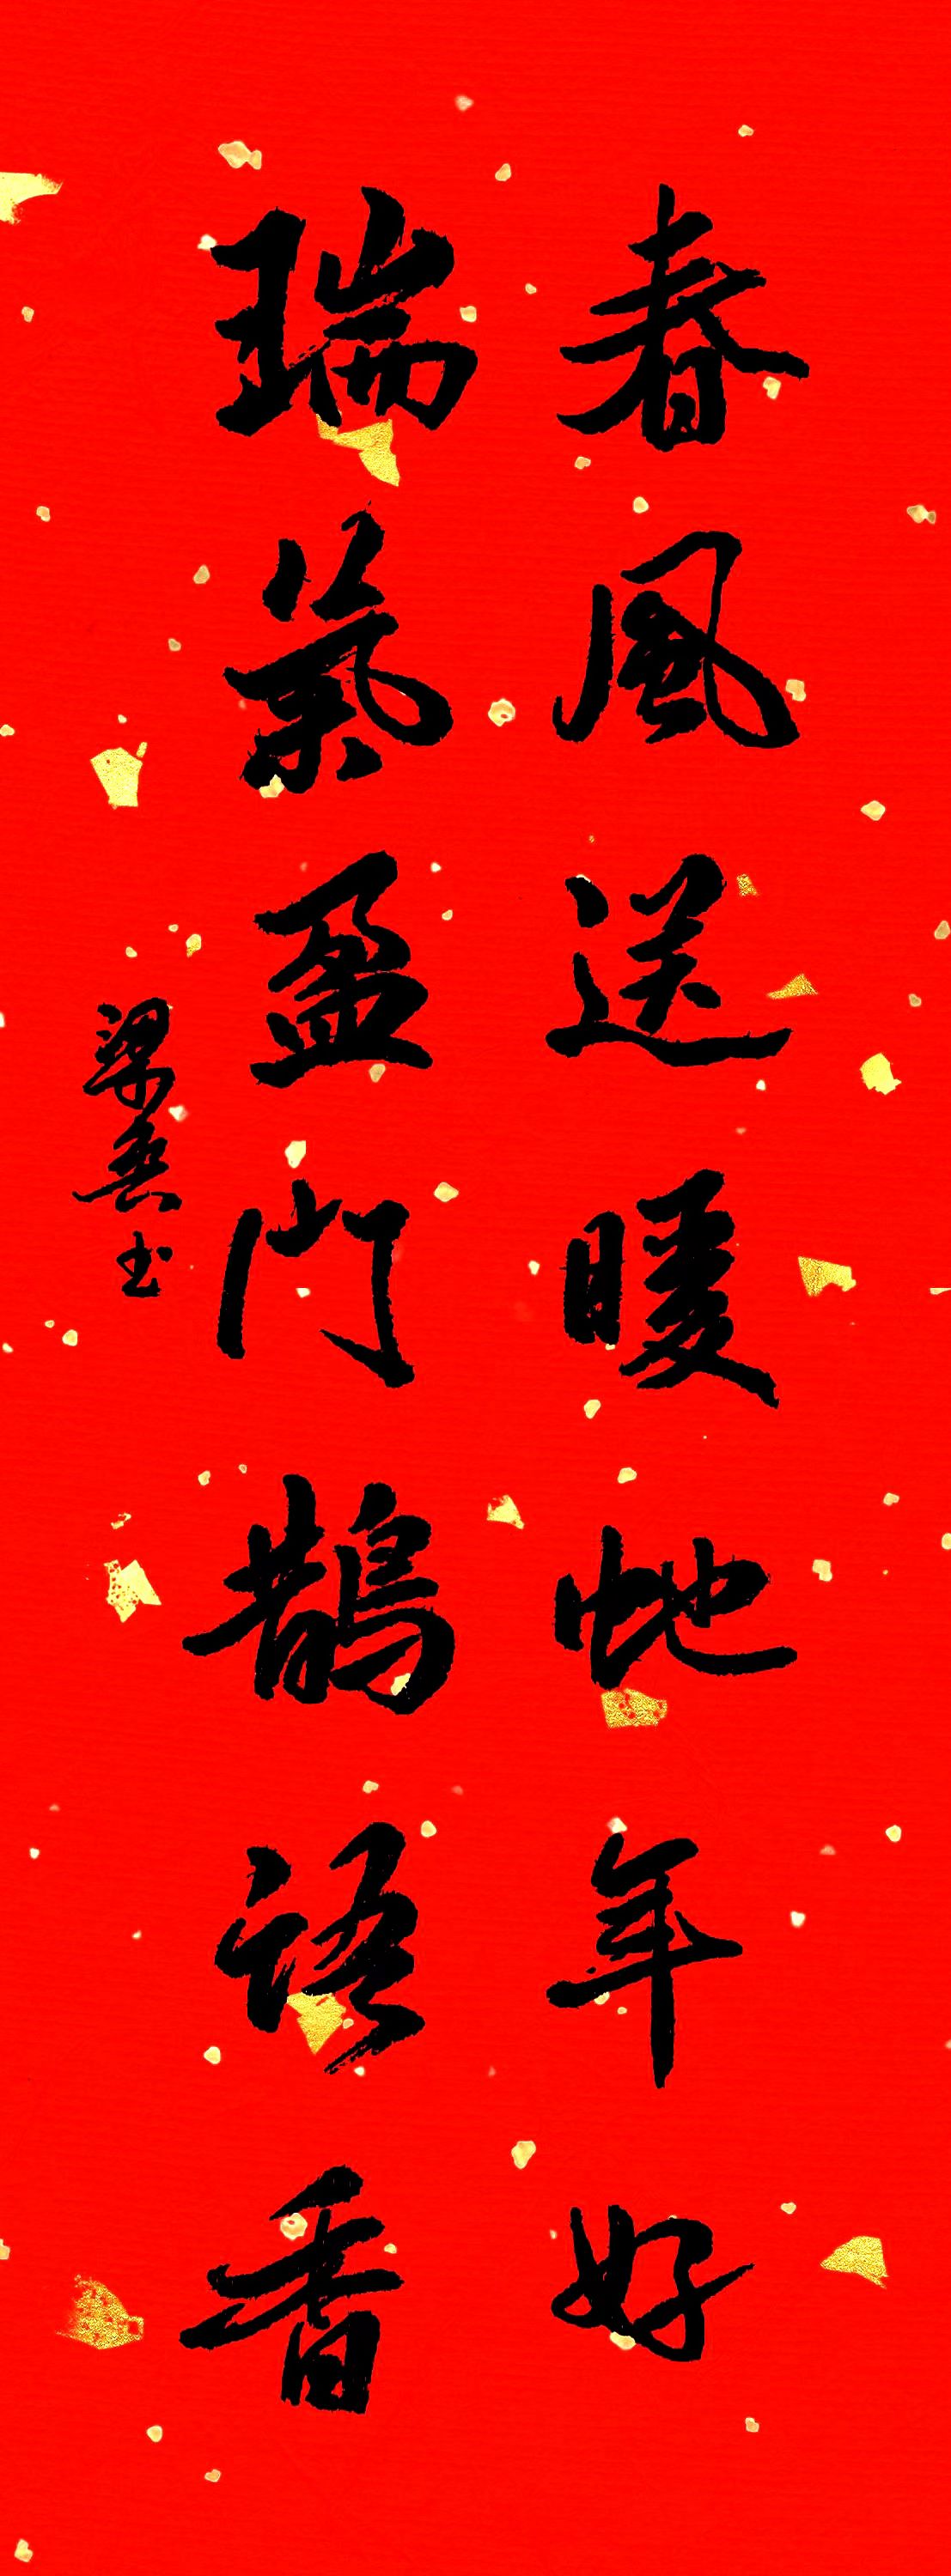 春風送暖地年好
瑞氣盈門鵲語香